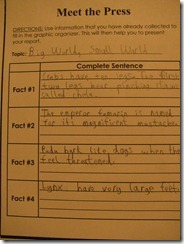 Meet the Press
DIRECTIONS: Use information that you have already collected
to fill in the graphic organizer. This will then help you to present
your report.
Topic: Big World, Small World
Complete Sentence
Fact #1
have two legs. The first
two legs have
called
Fact #2
The emperor tamarin is named
for its magnificent mustache.
Fact #3
bark like dogs when the
feel threatened.
Fact #4
Lynx have very large feet.